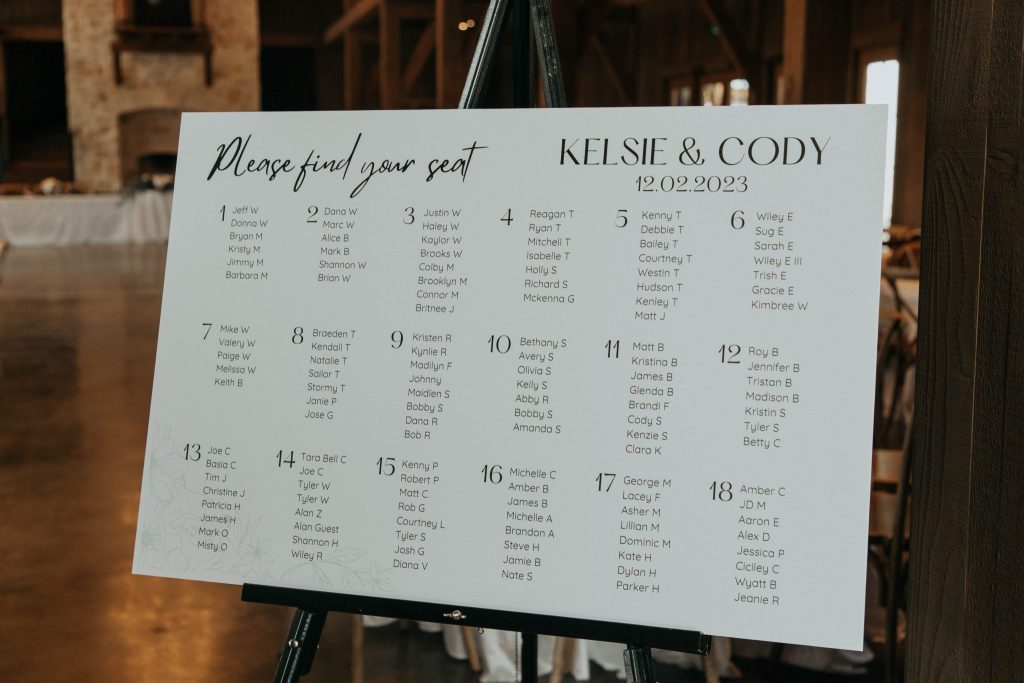 Please find your seat
KELSIE & CODY
12.02.2023
1 Jeff W
Donna W
Bryan M
Kristy M
Jimmy M
Barbara M
2 Dana W
Marc W
Alice B
Mark B
Shannon W
Brian W
3 Justin W
Haley W
Kaylor W
Brooks W
Colby M
Brooklyn M
Connor M
Britnee J
4 Reagan T
Ryan T
Mitchell T
Isabelle T
Holly S
Richard S
Mckenna G
5 Kenny T
Debbie T
Bailey T
Courtney T
Westin T
Hudson T
Kenley T
Matt J
6 Wiley E
Sug E
Sarah E
Wiley E III
Trish E
Gracie E
Kimbree W
7 Mike W
Valery W
Paige W
Melissa W
Keith B
8 Braeden T
Kendall T
Natalie T
Sailor T
Stormy T
Janie P
Jose G
9 Kristen R
Kynlie R
Madilyn F
Johnny
Maidlen S
Bobby S
Dana R
Bob R
10 Bethany S
Avery S
Olivia S
Kelly S
Abby R
Bobby S
Amanda S
11 Matt B
Kristina B
James B
Glenda B
Brandi F
Cody S
Kenzie S
Clara K
12 Roy B
Jennifer B
Tristan B
Madison B
Kristin S
Tyler S
Betty C
13 Joe C
Basia C
Tim J
Christine J
Patricia H
James H
Mark O
Misty O
14 Tara Bell C
Joe C
Tyler W
Tyler W
Alan Z
Alan Guest
Shannon H
Wiley R
15 Kenny P
Robert P
Matt C
Rob G
Courtney L
Tyler S
Josh G
Diana V
16 Michelle C
Amber B
James B
Michelle A
Brandon A
Steve H
Jamie B
Nate S
17 George M
Lacey F
Asher M
Lillian M
Dominic M
Kate H
Dylan H
Parker H
18 Amber C
JD M
Aaron E
Alex D
Jessica P
Ciciley C
Wyatt B
Jeanie R